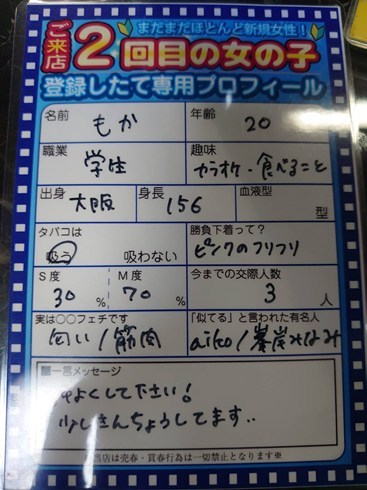 まだまだほとんど新規女性！
ご来店2回目の女の子
登録したて専用プロフィール
名前 もか 年齢 20
職業 学生 趣味 カラオケ・食べること
出身 大阪 身長 156 血液型 型
タバコは 吸う 吸わない 勝負下着って？ ピンクのフリフリ
S度 30 % M度 70 % 今までの交際人数 3 人
実は○○フェチです 匂い/筋肉 「似てる」と言われた有名人 aiko/峯岸みなみ
■一言メッセージ
仲よくして下さい！
少しきんちょうしてます..
当店は売春・買春行為は一切禁止となります※